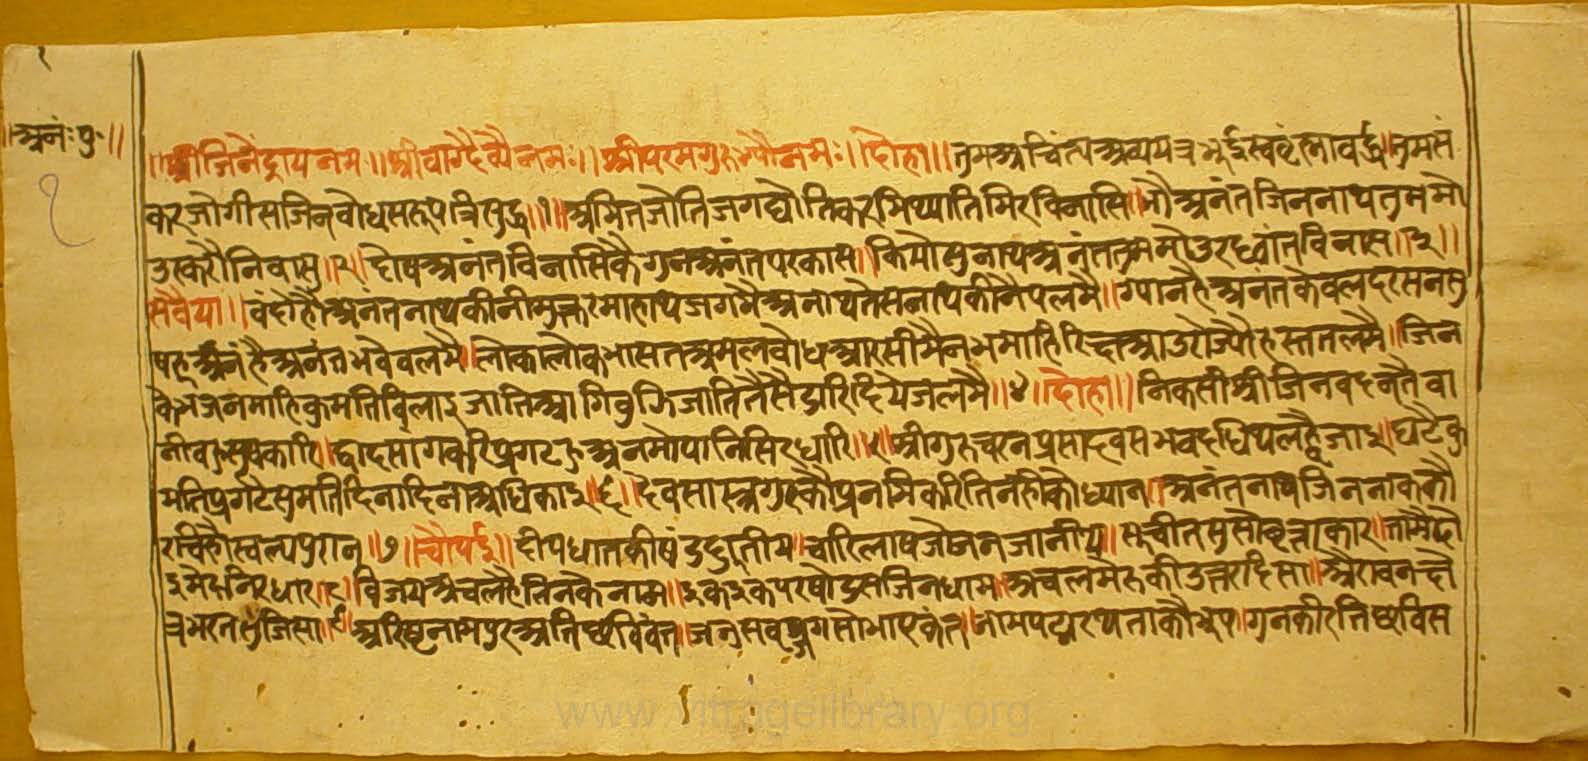 १
॥अनंः पुः॥
१
॥श्रीजिनेंद्रायनमः॥श्रीवाग्देव्यैनमः॥श्रीपरमगुरुभ्योनमः॥दोहा॥तुमअचिंत्यअव्यय तुमसं
करजोगीसजिनबोधसरूपत्रिसुद्ध॥१॥अमितजोतिजगद्योतिकरमिथ्यातिमिरविनासि॥भोअनंतजिननाथतुममो
उरकरौनिवासु॥२॥दोषअनंतविनासिकैगुनअनंतपरकास॥कियोसुनाथअनंततुममोउरध्वांतविनास॥३॥
सवैया॥वंदौहौंअनंतनाथकीनीमुक्तरमाहाथजगमैअनाथतेसनाथकीनैपलमै॥ग्यानहैअनंतकेवलदरसनसु
षहूअनंतहैअनंतभवेवलमै॥लोकालोकभासतअमलबोधआरसीमैनभमाहिरिछआउरोज्यौहस्ततलमै॥जिन
केभजनमाहिकुमतिविलाइजातिआगिबुझिजातिजैसैडारिदियेजलमै॥४॥दोहा॥निकसीश्रीजिनवदनतैवा
नीबहुसुषकारि॥द्वादसांगकरिप्रगटहुअनमोपानिसिरधारि॥५॥श्रीगुरुचरनप्रसादवसभवदधिथलह्वैजाइ॥घटैकु
मतिप्रगटैसुमतिदिनदिनोअधिकाइ॥६॥देवसास्त्रगुरुकौप्रनमिकरितिनहीकौध्यान॥अनंतनाथजिननाथकौ
रचिहौस्वल्पपुरान॥७॥चौपई॥दीपधातकीषंडदुतीय॥चारिलाषजोजनजानीय॥सूचीतसुसौवृत्ताकार॥तामैदो
इमेरुनिरधार॥८॥विजयअचलहैतिनकेनाम॥इकइकपरषोडसजिनधाम॥अचलमेरुकीउत्तरदिसा॥ऐरावतछै
त्रभरतसुजिसा॥९॥अरिष्टनामपुरअतिछविवंत॥जनुसवपुरसोभाएकंत॥नामपद्मरथताकौभूप॥गुनकीरतिछविस
www.vitragelibrary.org